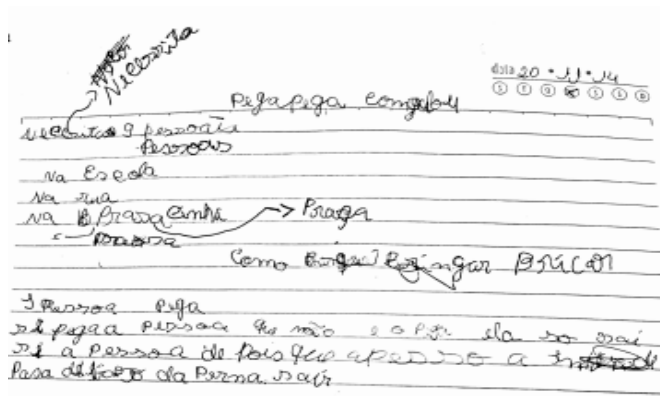 Necessita
data 20 • 11 • 14
S T Q Q S S D
Pega pega congelou
necessita 9 pessoais
Pessoas
Na Escola
Na rua
Na Prasa cinha → Praça
Como Brincar
1 Pessoa pega
se pega a pessoa que não e o pega ela so sai
se a Pessoa de Pois que a pessoa
Pasa de baxo da Perna sair